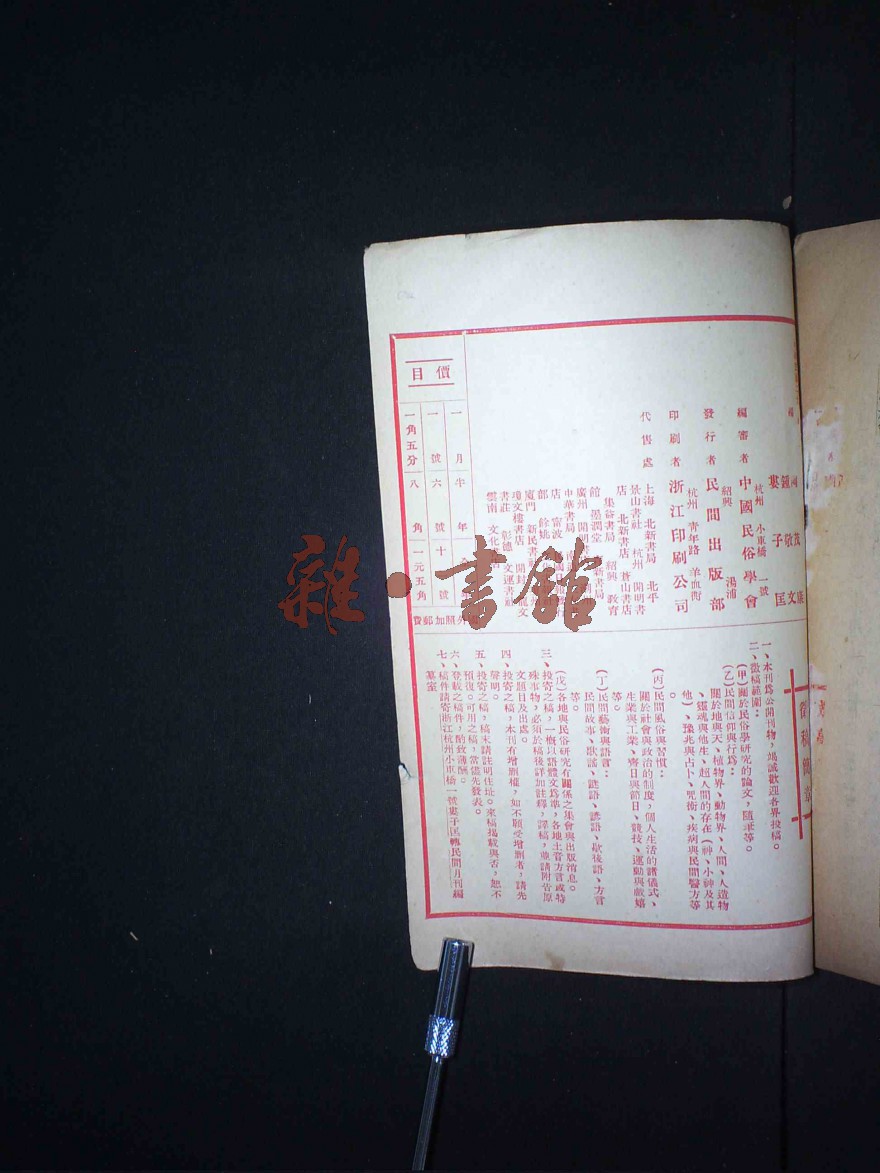 編審者 中國民俗學會
杭州 小車橋 一號
發行者 民間出版部
紹興 湯浦
印刷者 浙江印刷公司
杭州 青年路 羊血衖
代售處
上海 北新書局 北平
景山書社 杭州 開明書
店 北新書店 蒼山書店
集益書局 紹興 教育
館 墨潤堂
廣州 開明
中華書局
店 寧波
部 餘姚
廈門 新民書社
瓊文樓書店
書莊 彰德 文運書社
雲南 文化
價目
一月 半年
一號 六號 十 號
一角五分 八角 一元五角
照加郵費
徵稿簡章
一、本刊爲公開刊物，竭誠歡迎各界投稿。
二、徵稿範圍：
(甲)關於民俗學研究的論文，隨筆等。
(乙)民間信仰與行爲：
關於地與天、植物界、動物界、人間、人造物
、靈魂與他生、超人間的存在（神、小神及其
他）、豫兆與占卜、咒術、疾病與民間醫方等
。
(丙)民間風俗與習慣：
關於社會與政治的制度，個人生活的諸儀式、
生業與工業、齊日與節日、競技、運動與戲嬉
等。
(丁)民間藝術與語言：
民間故事、歌謠、謎語、諺語、歇後語、方言
等。
(戊)各地與民俗研究有關係之集會與出版消息。
三、投寄之稿，一概以語體文爲準，各地土音方言或特
殊事物，必須於稿後詳加註釋，譯稿，並請附吿原
文題目及出處。
四、投寄之稿，本刊有增删權，如不願受增删者，請先
聲明。
五、投寄之稿，稿末請註明住址。來稿揭載與否，恕不
預復。可用之稿，當儘先發表。
六、登載之稿件，酌致薄酬。
七、稿件請寄浙江杭州小車橋一號婁子匡轉民間月刊編
纂室
雜·書館